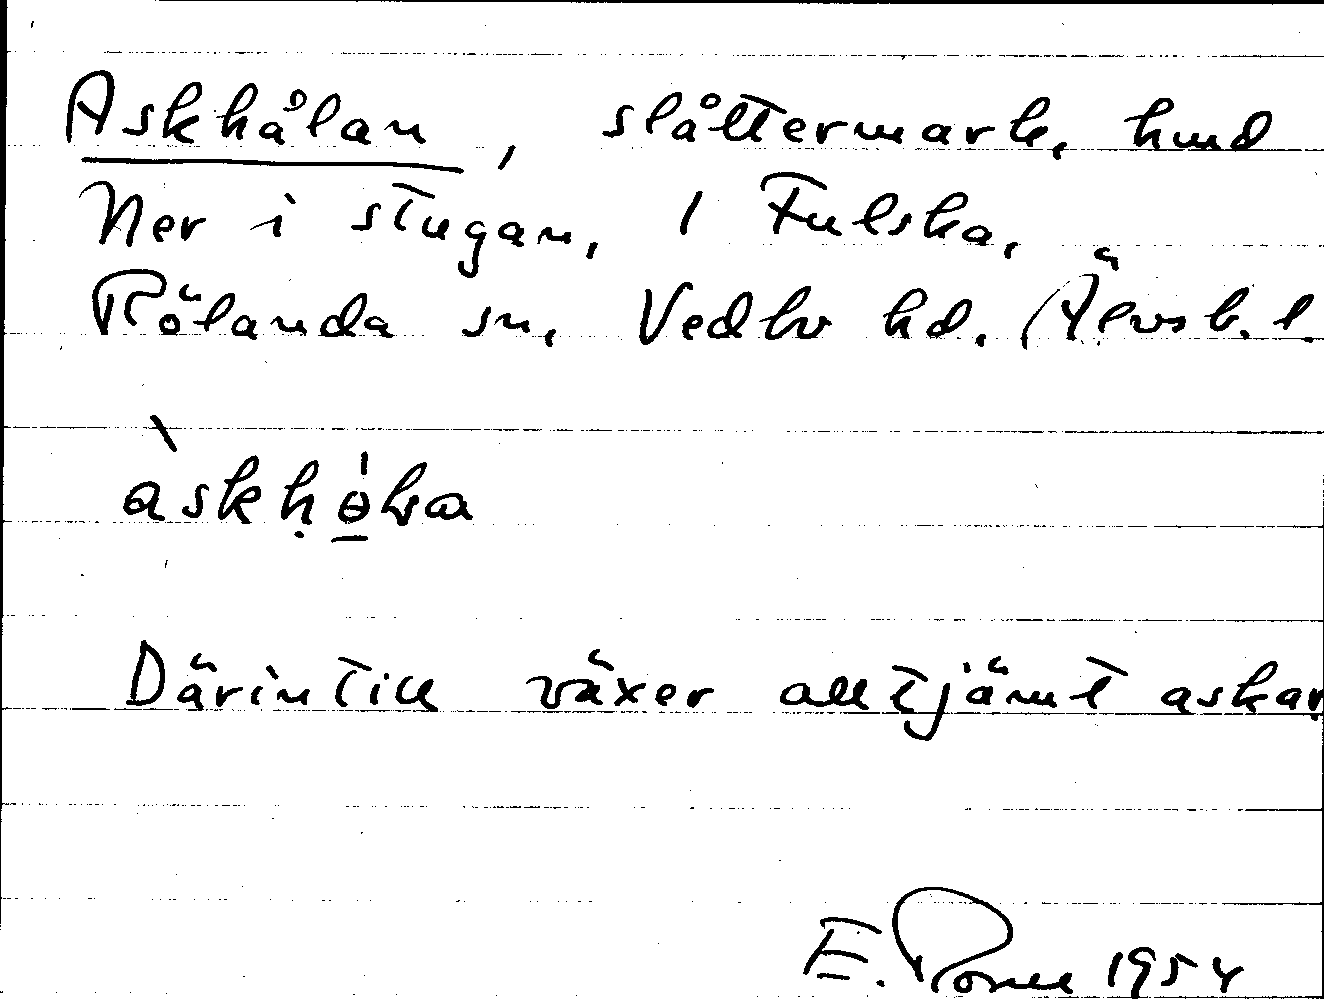 Askhålan, slåttermark, hmd
Ner i stugan, 1 Fulska,
Rölanda sn, Vedbo hd. Älvsb. l.
Därintill växer alltjämt askar
E. 1954